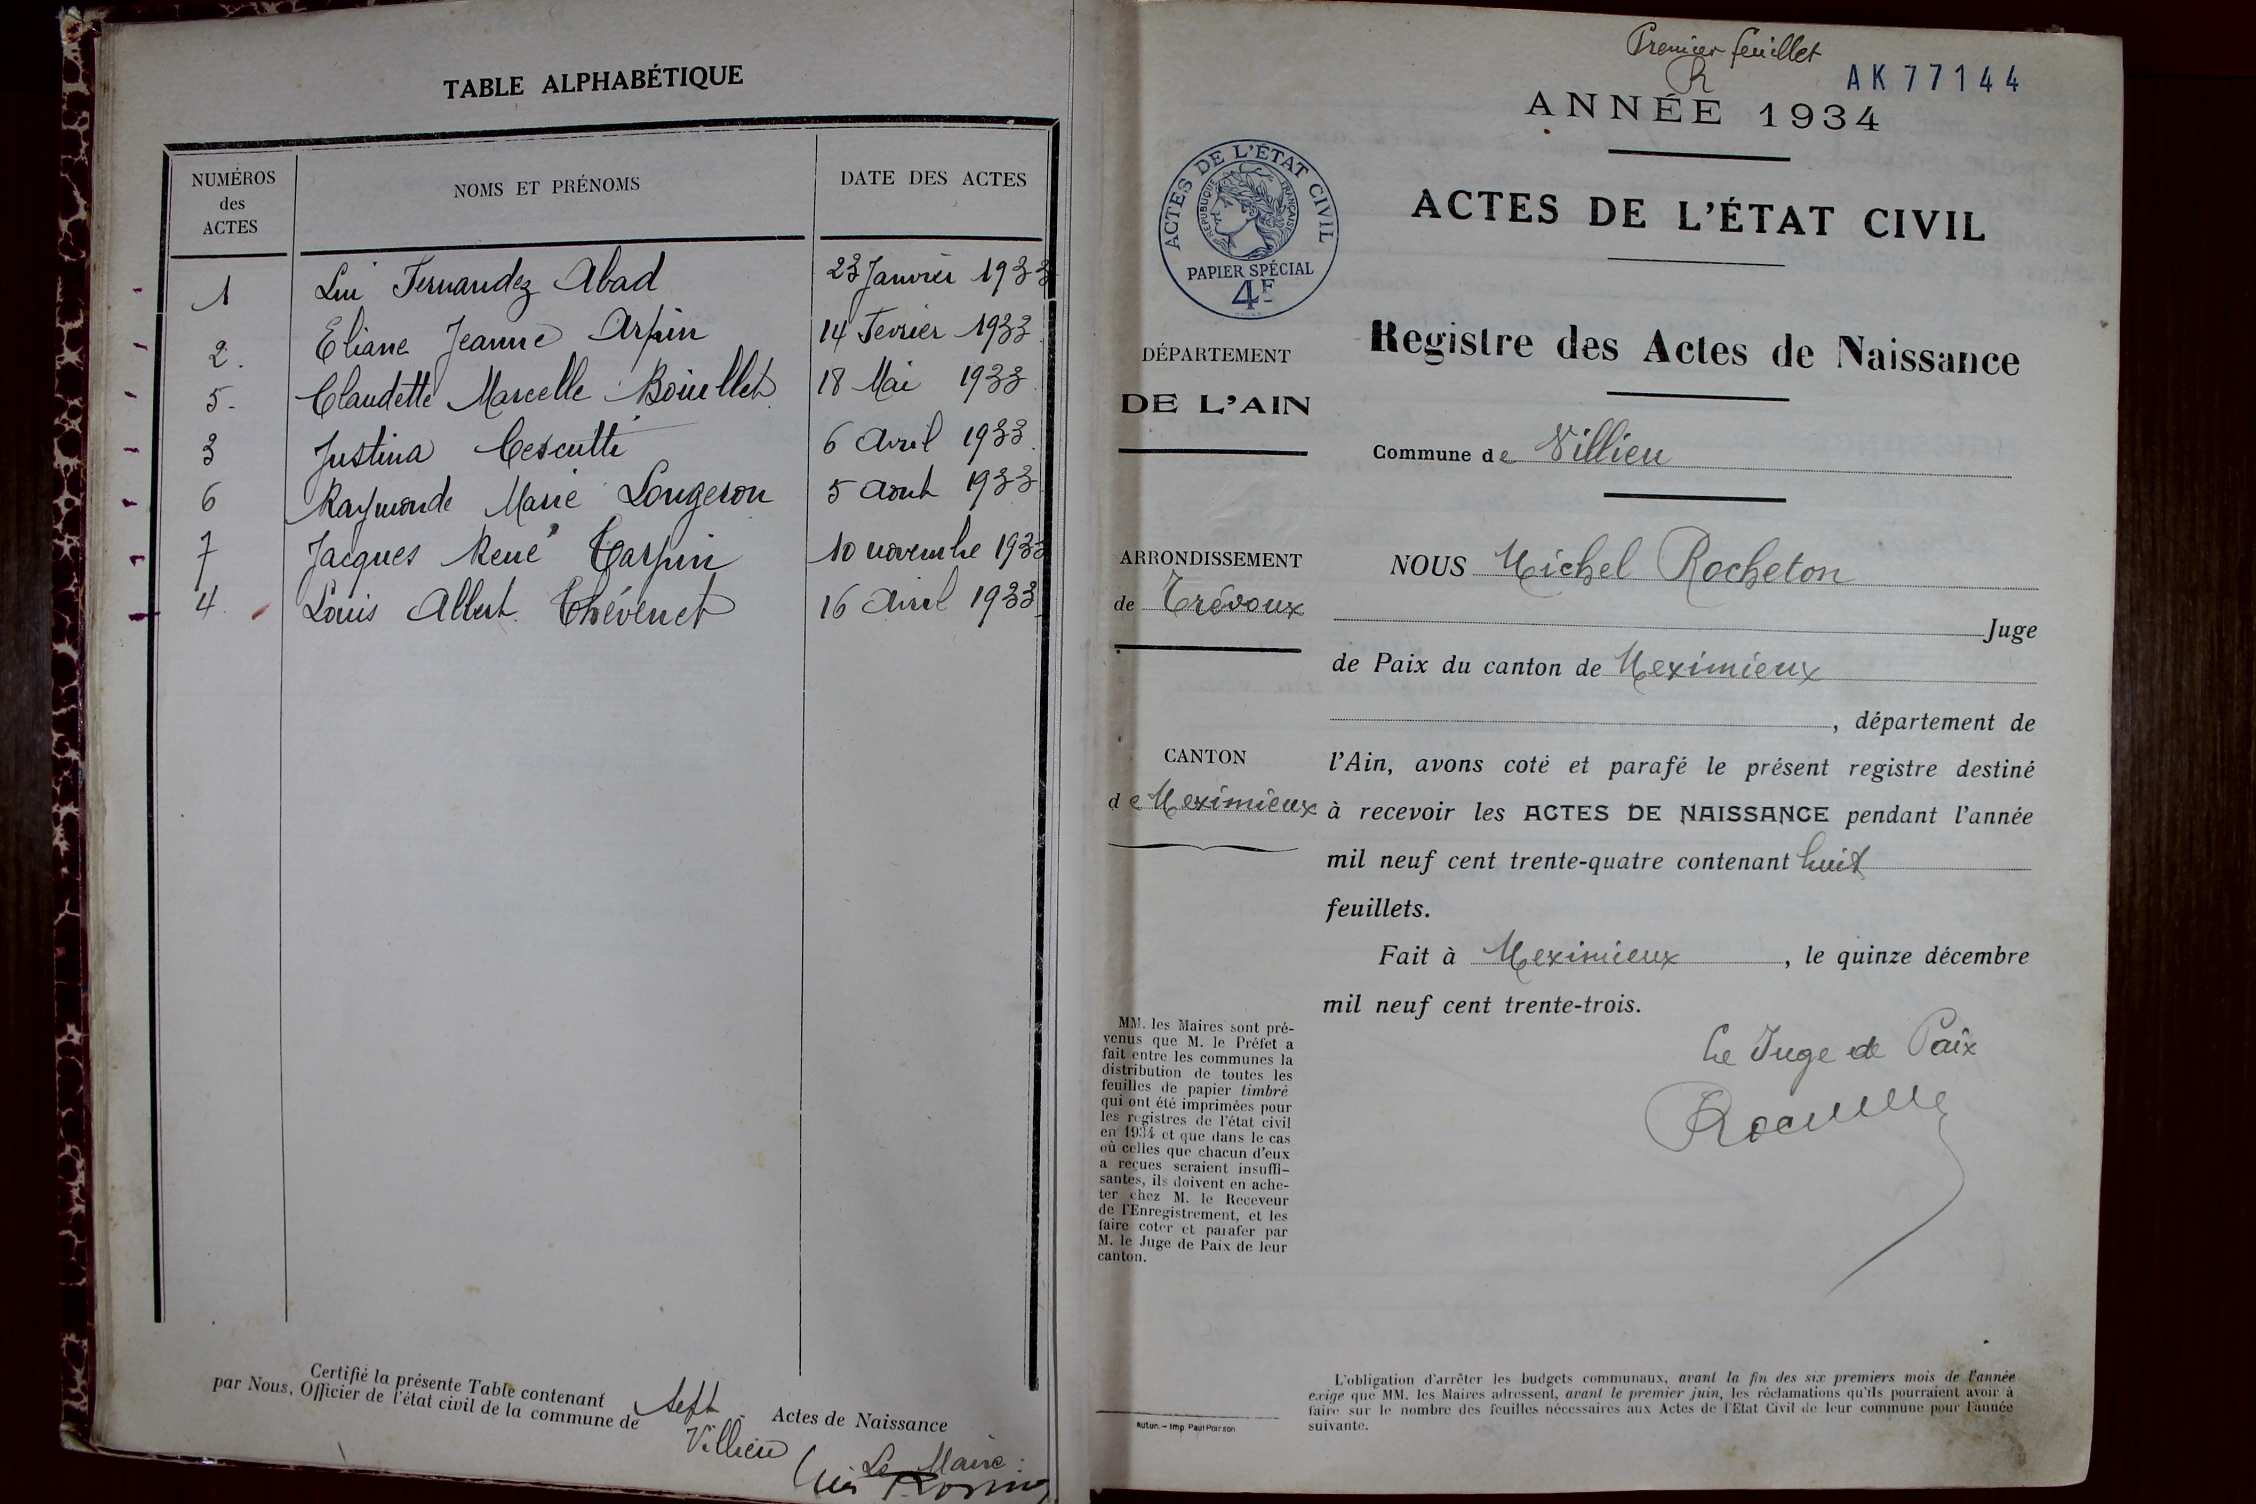 TABLE ALPHABÉTIQUE
NUMÉROS des ACTES NOMS ET PRÉNOMS DATE DES ACTES
1 Lui Fernandez Abad 23 Janvier 1933
2. Eliane Jeanne Arpin 14 Fevrier 1933
5. Claudette Marcelle Bouillet 18 Mai 1933
3 Justina Cescutti 6 Avril 1933
6 Raymonde Marie Longeron 5 Aout 1933
7 Jacques René Tarpin 10 novembre 1933
4. Louis Albert Thévenet 16 Avril 1933
Certifié la présente Table contenant sept Actes de Naissance
par Nous, Officier de l'état civil de la commune de Villieu
Le Maire:
Premier feuillet
R
AK 77144
ANNÉE 1934
ACTES DE L'ÉTAT CIVIL
ACTES DE L'ÉTAT CIVIL
RÉPUBLIQUE FRANÇAISE
PAPIER SPÉCIAL
4F
DÉPARTEMENT
DE L'AIN
ARRONDISSEMENT
de Trévoux
CANTON
de Meximieux
MM. les Maires sont pré-
venus que M. le Préfet a
fait entre les communes la
distribution de toutes les
feuilles de papier timbré
qui ont été imprimées pour
les registres de l'état civil
en 1934 et que dans le cas
où celles que chacun d'eux
a reçues seraient insuffi-
santes, ils doivent en ache-
ter chez M. le Receveur
de l'Enregistrement, et les
faire coter et parafer par
M. le Juge de Paix de leur
canton.
Autun. – Imp. Paul Poirson
Registre des Actes de Naissance
Commune de Villieu
NOUS Michel Rocheton
Juge
de Paix du canton de Meximieux
, département de
l'Ain, avons coté et parafé le présent registre destiné
à recevoir les ACTES DE NAISSANCE pendant l'année
mil neuf cent trente-quatre contenant huit
feuillets.
Fait à Meximieux, le quinze décembre
mil neuf cent trente-trois.
Le Juge de Paix
L'obligation d'arrêter les budgets communaux, avant la fin des six premiers mois de l'année
exige que MM. les Maires adressent, avant le premier juin, les réclamations qu'ils pourraient avoir à
faire sur le nombre des feuilles nécessaires aux Actes de l'Etat Civil de leur commune pour l'année
suivante.